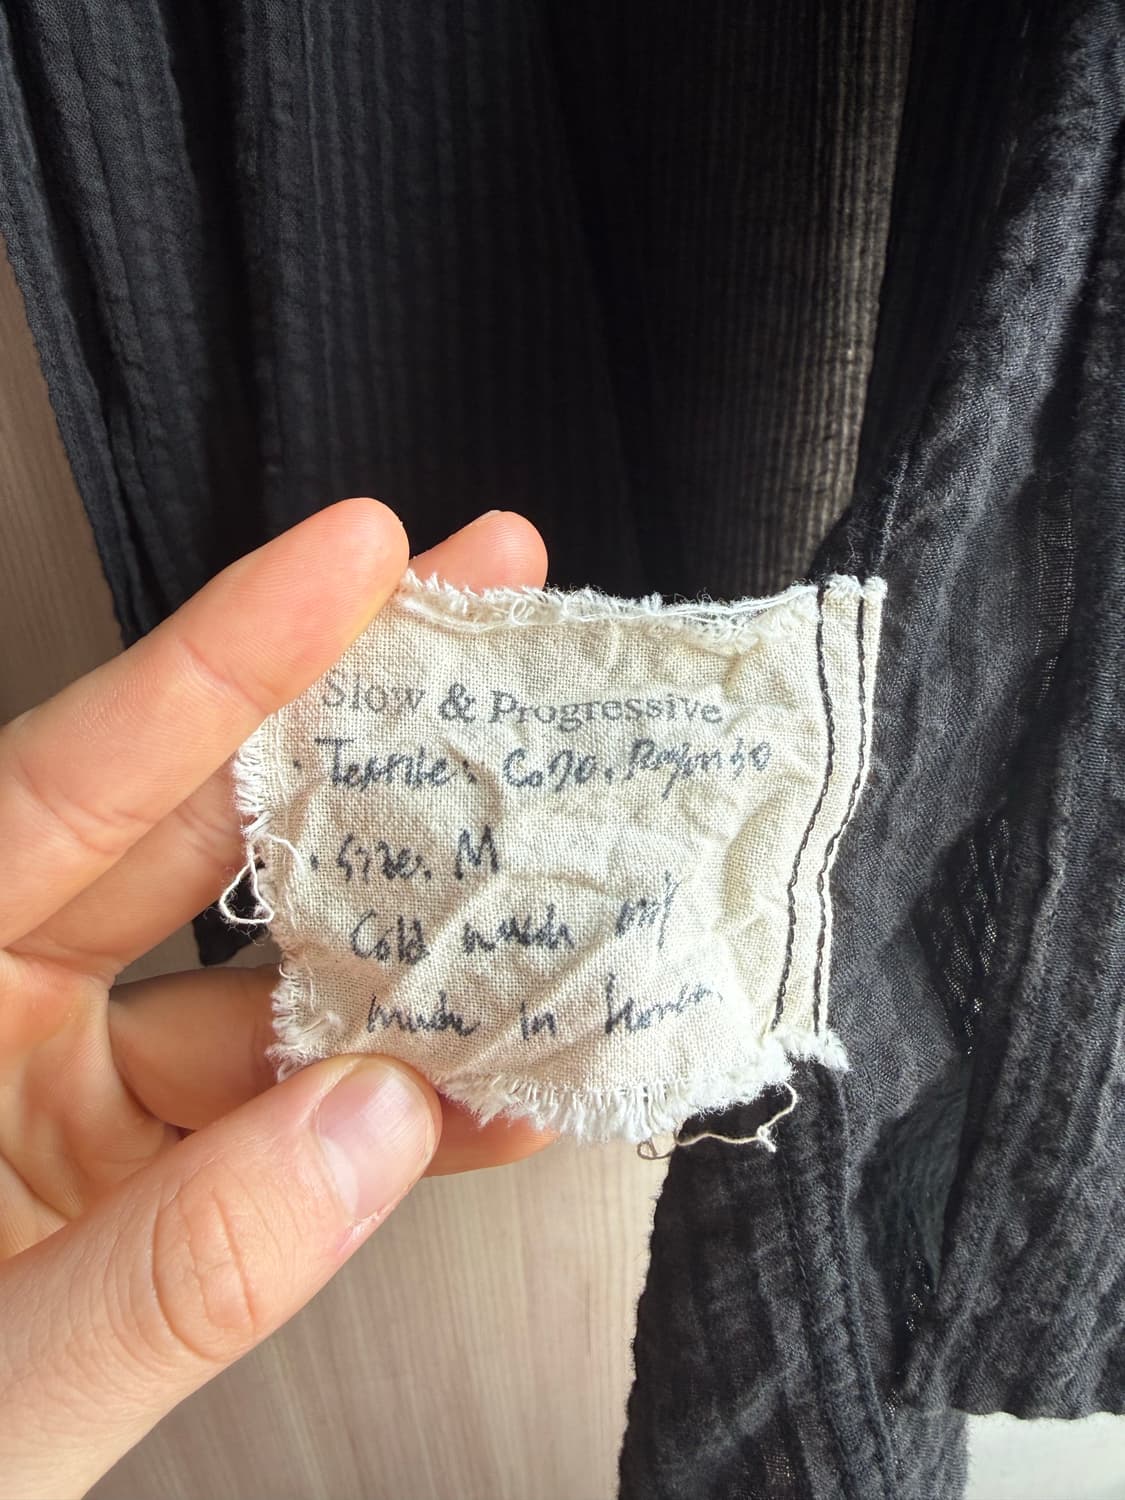 Slow & Progressive
· Textile. Co70. Ray
· Size. M
Cold wash only
made in